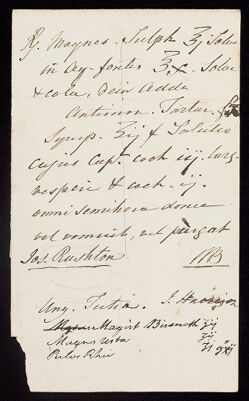 ℞. Magnes. Sulph ℥j Solve
in Aq. fontis ℥x. Solve
& cola, dein adde
Antimon. Tartar.
Syrup. ʒij f Solutio
cujus Capt. coch iij. larg
vespere & coch. ij.
omni semihora donec
vel vomerit, vel purgat
Jos. Rushton
Ung. Tutia. J. Harrison
Magist Bismuth ʒij
Magnes usta
Pulv Rhei